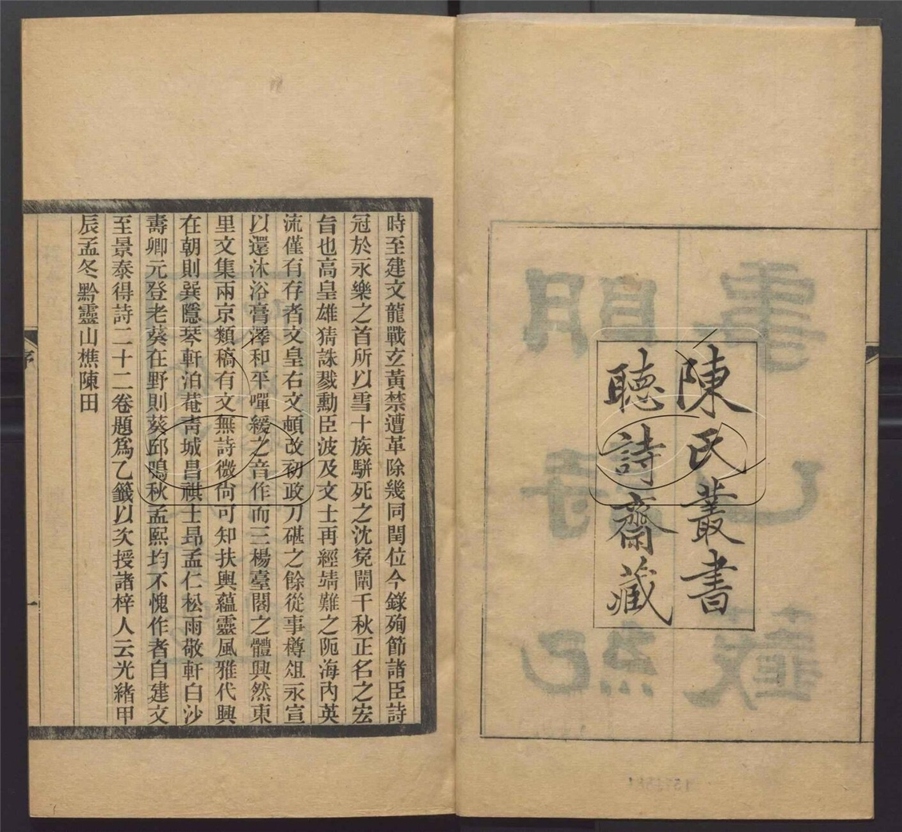 陳氏叢書
聽詩齋藏
時至建文龍戰玄黃禁遭革除幾同閏位今錄殉節諸臣詩
冠於永樂之首所以雪十族駢死之沈冤闡千秋正名之宏
旨也高皇雄猜誅戮勳臣波及文士再經靖難之阨海內英
流僅有存者文皇右文頓改初政刀碪之餘從事樽俎永宣
以還沐浴膏澤和平嘽緩之音作而三楊臺閣之體興然東
里文集兩京類稿有文無詩微尙可知扶輿蘊靈風雅代興
在朝則巽隱琴軒泊菴靑城昌祺士昂孟仁松雨敬軒白沙
壽卿元登老葵在野則葵邱鳴秋孟熙均不愧作者自建文
至景泰得詩二十二卷題爲乙籤以次授諸梓人云光緖甲
辰孟冬黔靈山樵陳田
序
一